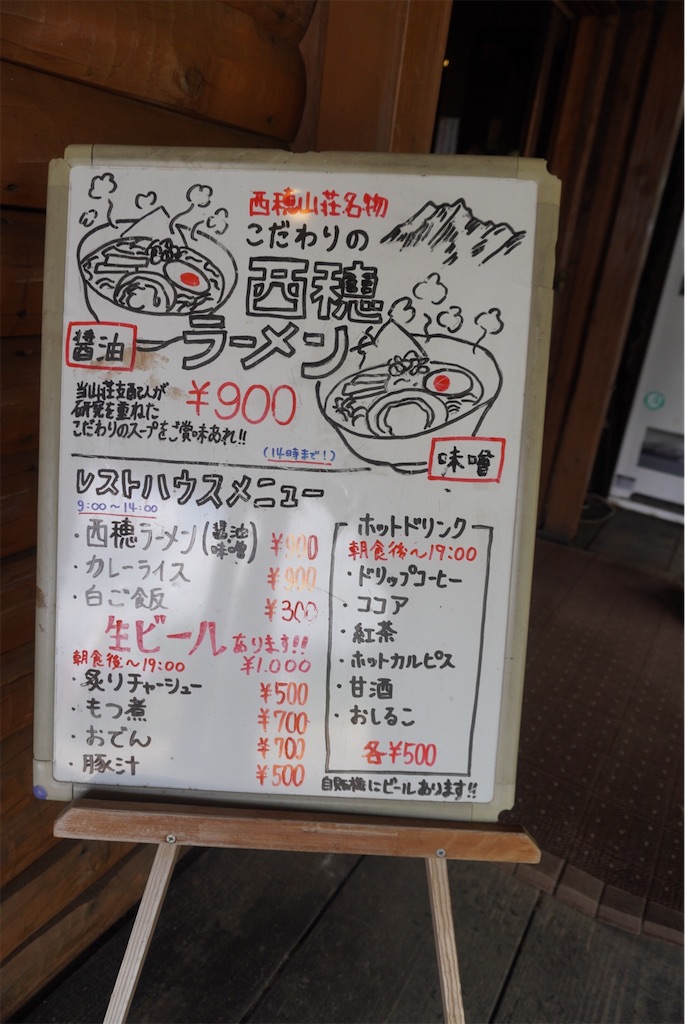 西穂山荘名物
こだわりの
西穂
ラーメン
醤油
¥900
当山荘支配人が
研究を重ねた
こだわりのスープをご賞味あれ!!
味噌
(14時まで!)
レストハウスメニュー
9:00~14:00
・西穂ラーメン(醤油 味噌) ¥900
・カレーライス ¥900
・白ご飯 ¥300
生ビールあります!!
朝食後~19:00 ¥1.000
・炙りチャーシュー ¥500
・もつ煮 ¥700
・おでん ¥700
・豚汁 ¥500
ホットドリンク
朝食後~19:00
・ドリップコーヒー
・ココア
・紅茶
・ホットカルピス
・甘酒
・おしるこ
各¥500
自販機にビールあります!!